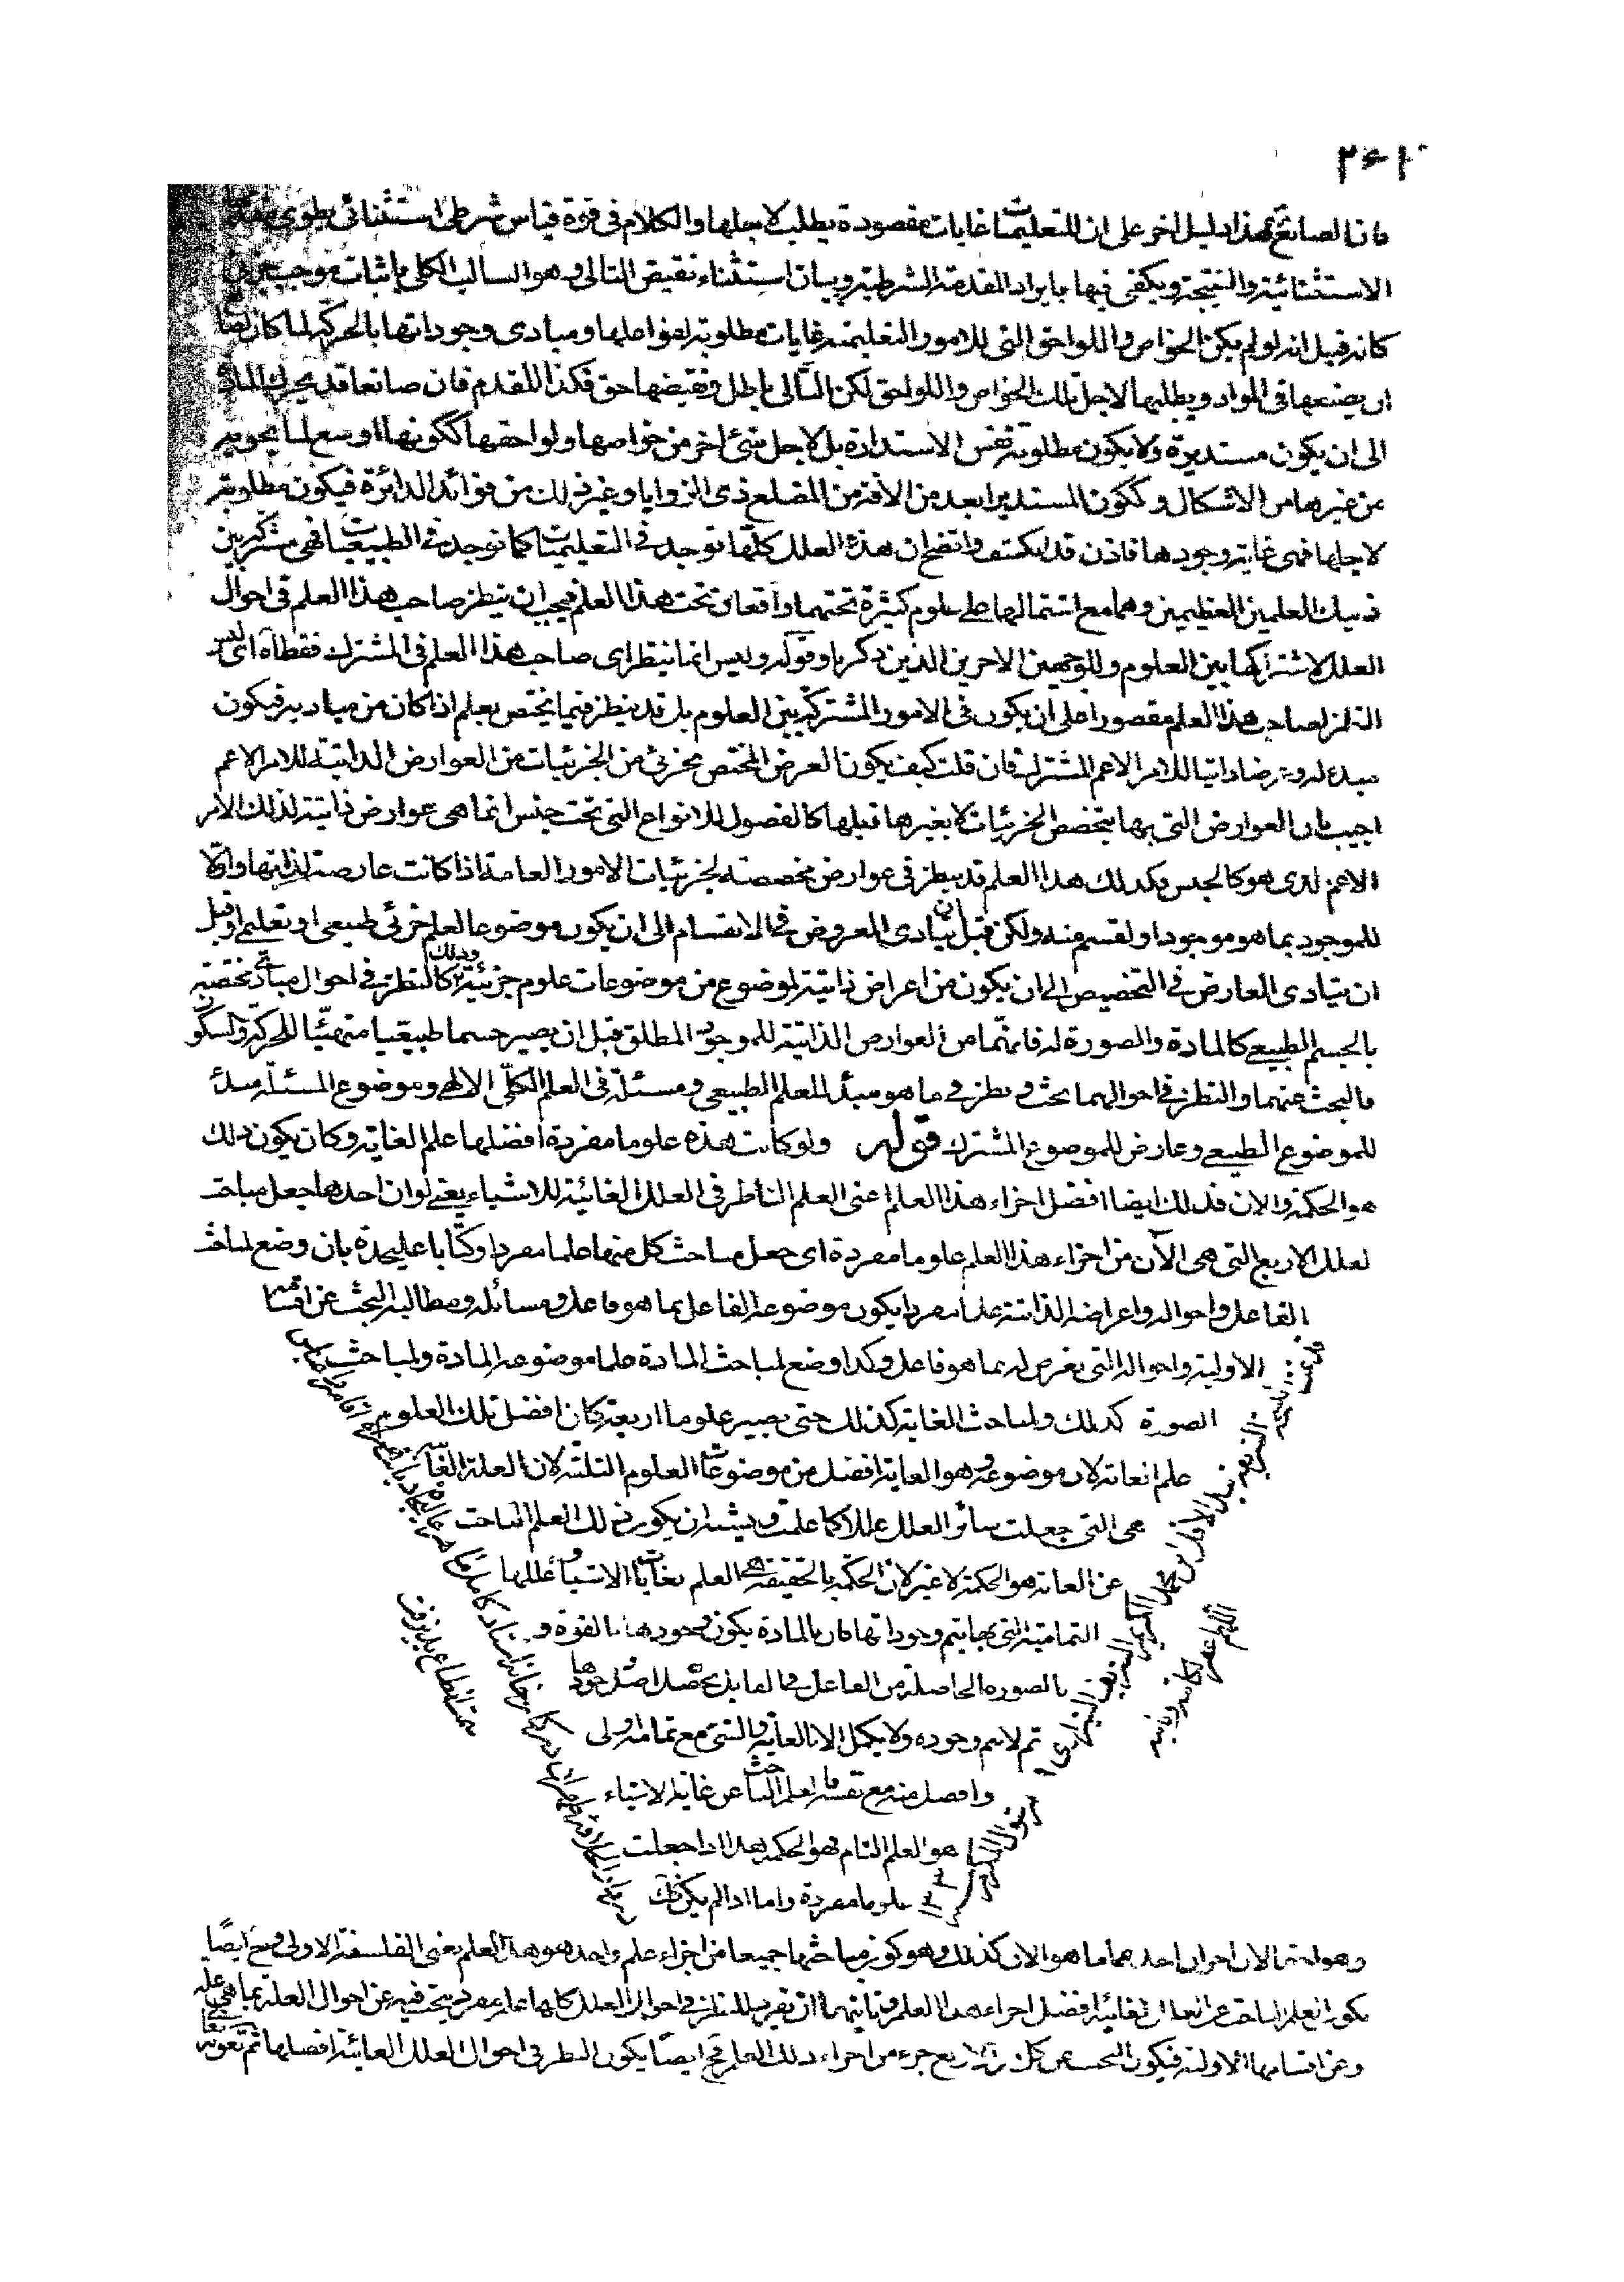 ٢٦١
فان الصانع هذا دليل اخر على ان للتعليميات غايات مقصودة يطلب لاجلها والكلام فى قوة قياس شرطى استثنائى يطوى فيه
الاستثنائية والنتيجة ويكفى فيها بايراد المقدمة الشرطية وبيان استثناء نقيض التالى وهو السالب الكلى باثبات موجب جزئى
كانه قيل انه لو لم يكن الخواص واللواحق التى للامور التعليمية غايات مطلوبة لفواعلها ومبادى وجوداتها بالحركة لما كان لصانع
ان يصنعها فى المواد ويطلبها لاجل تلك الخواص واللواحق لكن التالى باطل ونقيضها حق فكذا المقدم فان صانعا قد يحرك المادة
الى ان يكون مستديرة ولا يكون مطلوبه نفس الاستدارة بل لاجل شئ اخر من خواصها ولواحقها ككونها اوسع لما يحويه
من غيرها من الاشكال وككون المستدير ابعد من الافة من المضلع ذى الزوايا وغير ذلك من فوائد الدائرة فيكون مطلوبة
لاجلها فهى غاية وجودها فاذن قد انكشف واتضح ان هذه العلل كلها توجد فى التعليميات كما توجد فى الطبيعيات فهى مشتركة بين
ذينك العلمين العظيمين وهما مع اشتمالهما على علوم كثيرة تحتهما واقعان تحت هذا العلم فيجب ان ينظر صاحب هذا العلم فى احوال
العلل لاشتراكها بين العلوم وللوجهين الاخرين الذين ذكرنا وقوله وليس انما ينظر اى صاحب هذا العلم فى المشترك فقط آه اى ليس
النظر لصاحب هذا العلم مقصورا على ان يكون فى الامور المشتركة بين العلوم بل قد ينظر فيما يختص بعلم اذا كان من مباديه فيكون
مبدء له وعرضا ذاتيا للامر الاعم المشترك فان قلت كيف يكون العرض المختص بجزئى من الجزئيات من العوارض الذاتية للامر الاعم
اجيب بان العوارض التى بها يتخصص الجزئيات لا بغيرها قبلها كالفصول للانواع التى تحت جنس انما هى عوارض ذاتية لذلك الامر
الاعم الذى هو كالجنس فكذلك هذا العلم قد ينظر فى عوارض مخصصة لجزئيات الامور العامة اذا كانت عارضة لذاتها واولا
للموجود بما هو موجود او لقسم منه ولكن قبل ان يتادى المعروض فى الانقسام الى ان يكون موضوعا لعلم جزئى طبيعى او تعليمى او قبل
ان يتادى العارض فى التخصيص الى ان يكون من اعراض ذاتية لموضوع من موضوعات علوم جزئية وذلك كالنظر فى احوال مباد مختصة
بالجسم الطبيعى كالمادة والصورة له فانهما من العوارض الذاتية للموجود المطلق قبل ان يصير جسما طبيعيا متهيئا للحركة والسكون
فالبحث عنهما والنظر فى احوالهما بحث ونظر فى ما هو مبدأ للعلم الطبيعى ومسئلة فى العلم الكلى الالهى وموضوع المسئلة مبدء
للموضوع الطبيعى وعارض للموضوع المشترك قوله ولو كانت هذه علوما مفردة افضلها علم الغاية وكان يكون ذلك
هو الحكمة والان فذلك ايضا افضل اجزاء هذا العلم اعنى العلم الناظر فى العلل الغائية للاشياء يعنى لو ان احدهما جعل مباحث
لعلل الاربع التى هى الآن من اجزاء هذا العلم علوما مفردة اى جعل مباحث كل منها علما مفردا وكتابا عليحدة بان وضع لمباحث
الفاعل واحواله واعراضه الذاتية علما مفردا يكون موضوعه الفاعل بما هو فاعل ومسائله ومطالبه البحث عن اقسامه
الاولية واحواله التى يعرض له بما هو فاعل وكذا وضع لمباحث المادة علما موضوعه المادة ولمباحث
الصورة كذلك ولمباحث الغاية كذلك حتى يصير علوما اربعة كان افضل تلك العلوم
علم الغاية لان موضوعه وهو الغاية افضل من موضوعات العلوم الثلثة لان العلة الغائية
هى التى جعلت سائر العلل عللا كما علمت ويشبه ان يكون ذلك العلم الباحث
عن الغاية هو الحكمة لا غير لان الحكمة بالحقيقة هى العلم بغايات الاشياء وعللها
التمامية التى بها يتم وجوداتها فان بالمادة يكون وجودها بالقوة و
بالصورة الحاصلة من الفاعل فى القابل يحصل اصل وجودها
ثم لا يتم وجوده ولا يكمل الا بالغاية والشئ مع تمامه اولى
وافضل منه مع نقصه فالعلم الباحث عن غاية الاشياء
هو العلم التام فهو الحكمة هذا اذا جعلت
علوما مفردة واما اذا لم يكن كذلك
وهو ايضا لاحد احدهما ما هو الان كذلك وهو كون مباحثها جميعا من اجزاء علم واحد هو هذا العلم يعنى الفلسفة الاولى فح ايضا
يكون العلم الباحث عن العلل الغائية افضل اجزاء هذا العلم وثانيهما ان يفرد للنظر فى احوال العلل كلها علم مفرد يبحث فيه عن احوال العلة بما هى علة
وعن اقسامها الاولية فيكون البحث عن كل من الاربع جزء من اجزاء ذلك العلم فح ايضا يكون النظر فى احوال العلل الغائية افضلها